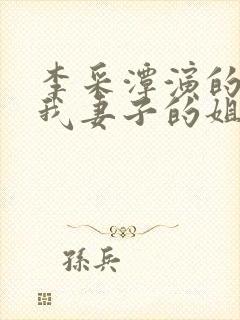 李采潭演的
我妻子的姐
孫兵